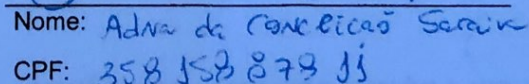 Nome: Adna da Conceicaõ Saraiva
CPF: 358 158 878 11